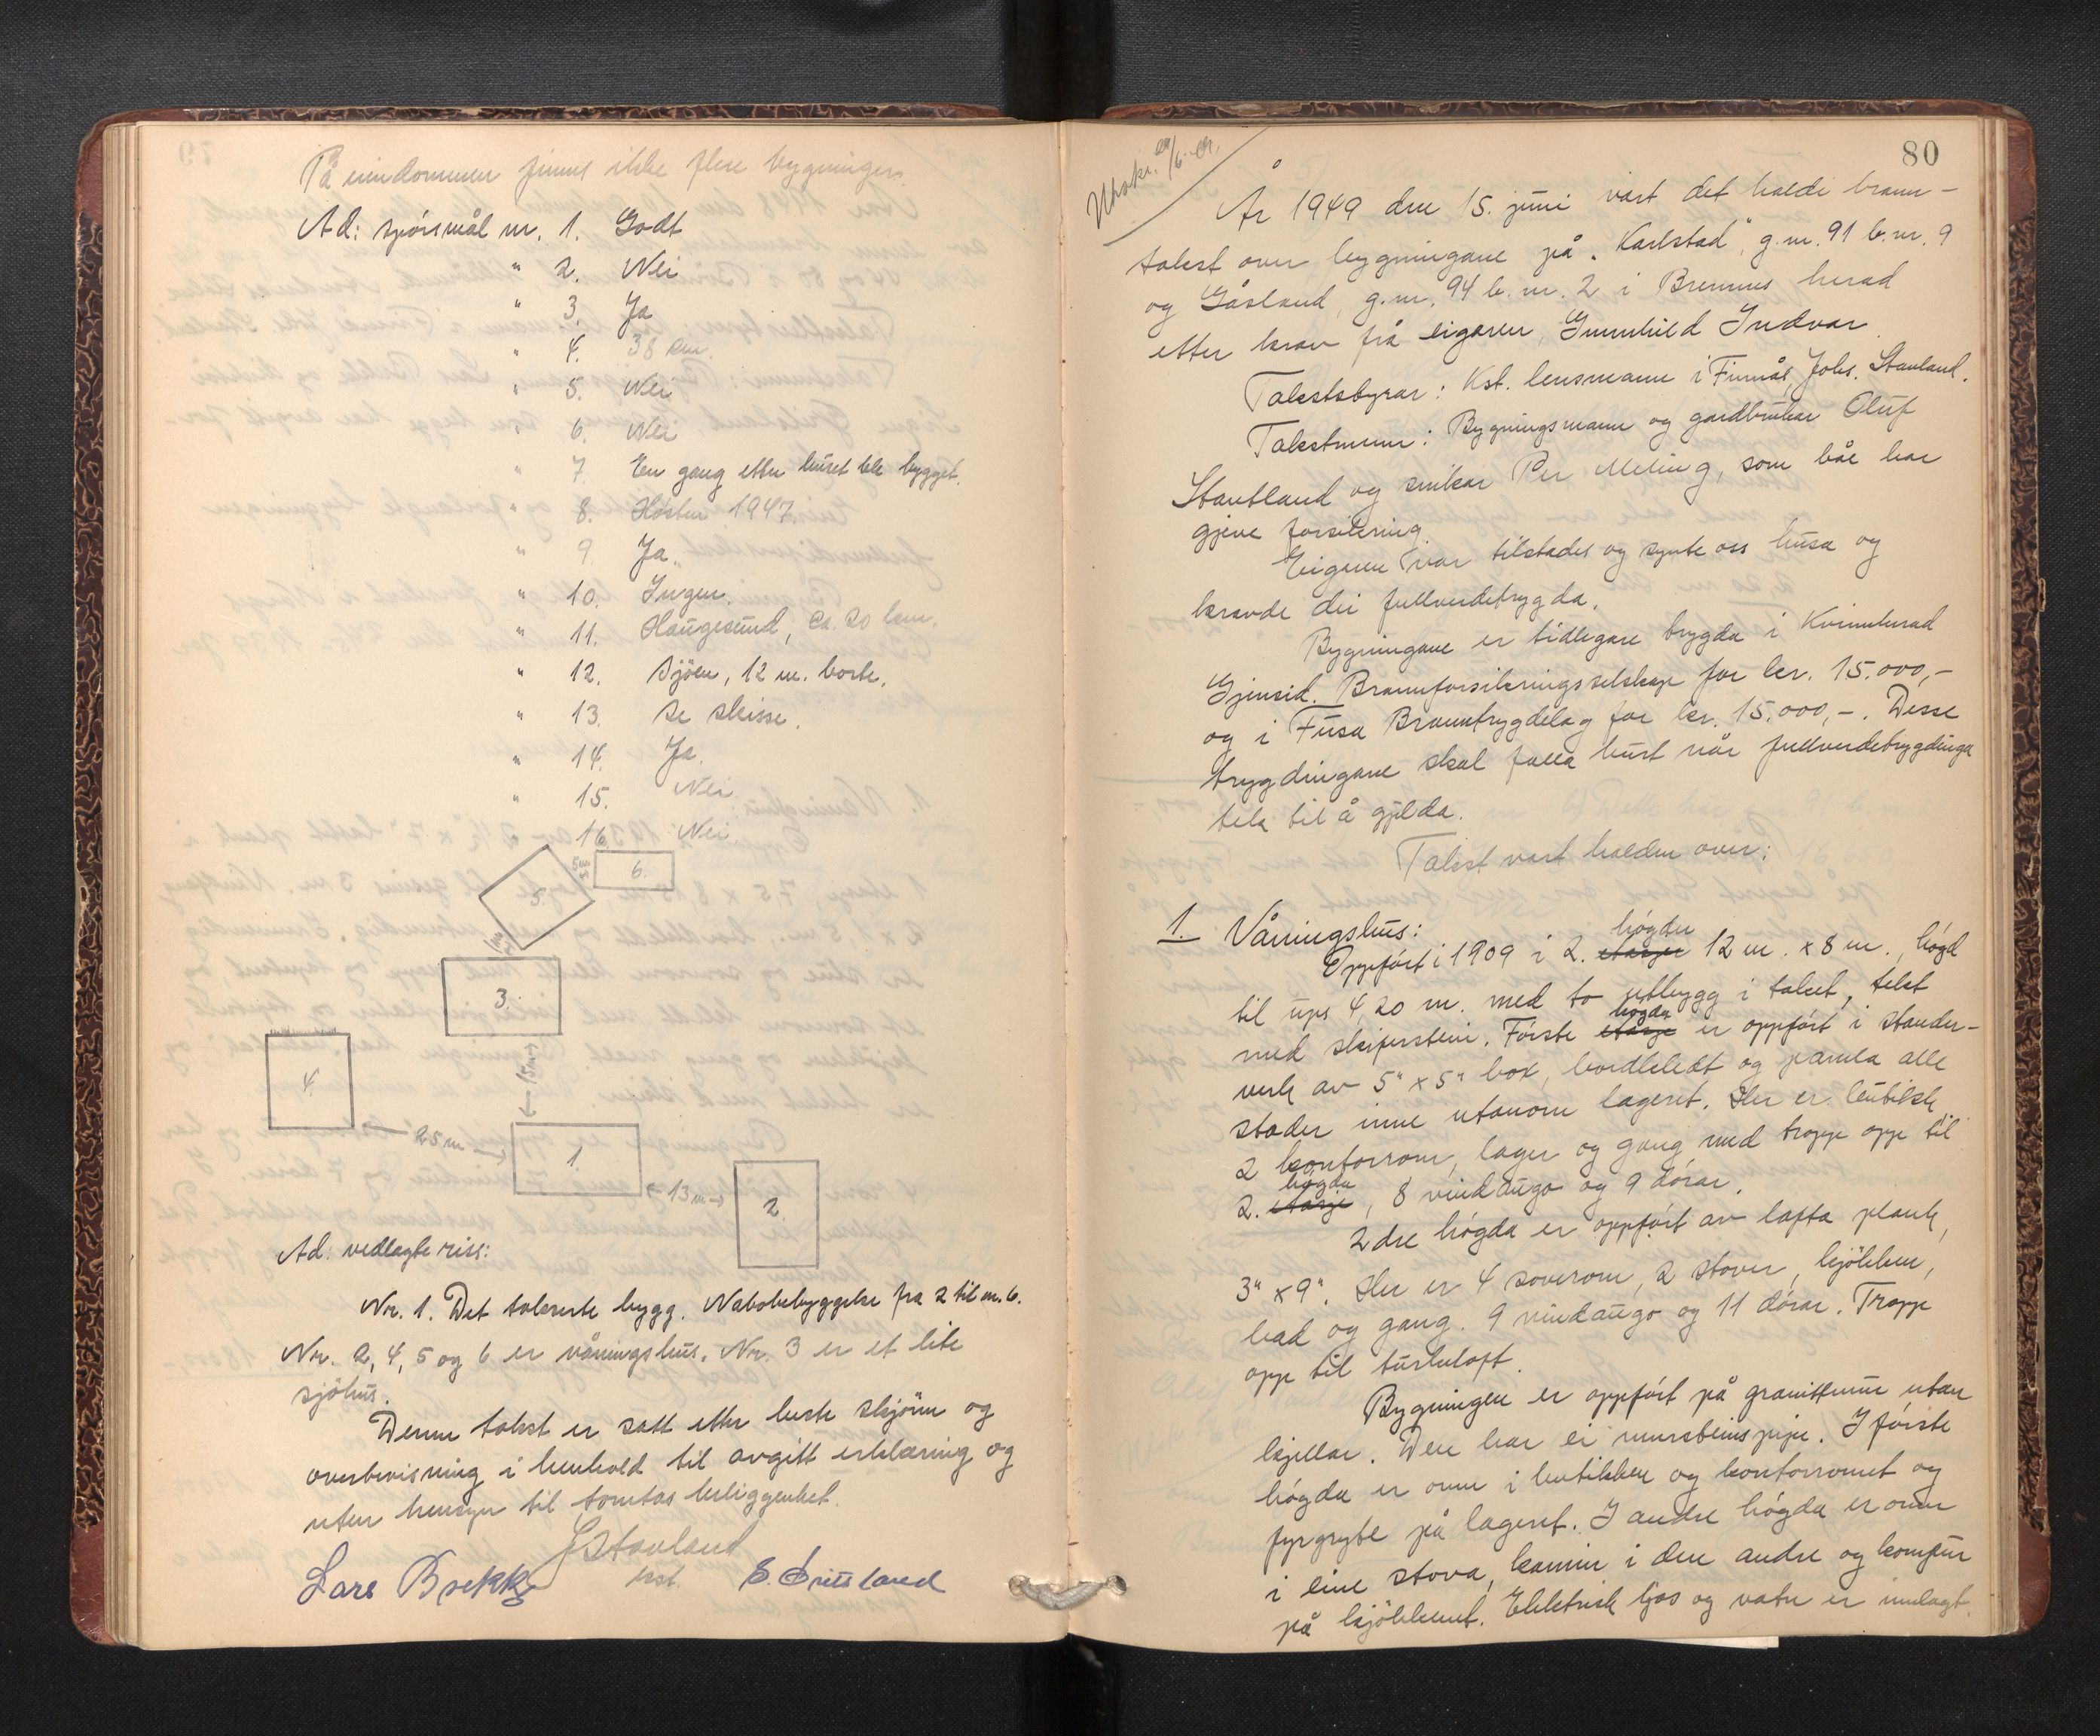 På eiendommen finnes ikke flere bygninger.
Ad: spörsmål nr. 1. Godt
" 2. Nei
" 3. Ja
" 4. 38 cm.
" 5. Nei
" 6. Nei
" 7 En gang etter huset ble bygget.
" 8. Hösten 1947.
" 9. Ja.
" 10. Ingen.
" 11. Haugesund, ca. 20 km.
" 12. Sjöen, 12 m. borte.
" 13. Se skisse.
" 14. Ja.
" 15. Nei.
" 16. Nei.
5 m
6.
5.
1 m
3.
15 m
4.
25 m
1.
13 m
2.
Ad: vedlagte riss:
Nr. 1. Det takserte bygg. Nabobebyggelse fra 2 til nr. 6.
Nr. 2, 4, 5 og 6 er våningshus. Nr. 3 er et lite
sjöhus.
Denne takst er satt etter beste skjönn og
overbevisning i henhold til avgitt erklæring og
uten hensyn til tomtas beliggenhet.
J Stavland
kst.
Lars Brekke
S. Fritsland
80
Utskr. /6.
År 1949 den 15. juni vart det haldi brann-
takst over bygningane på "Karlstad", g.nr. 91 b.nr. 9
og Gåsland, g.nr. 94 b.nr. 2 i Bremnes herad
etter krav frå eigaren, Gunnhild Indvar.
Takststyrar: Kst. lensmann i Finnås, Johs. Stavland.
Takstmenn: Bygningsmann og gardbrukar Oluf
Stautland og snikar Per Meling, som båe har
gjeve forsikring.
Eigaren var tilstades og synte oss husa og
kravde dei fullverdetrygda.
Bygningane er tidlegare trygda i Kvinnherad
Gjensid. Brannforsikringsselskap for kr. 15.000,-
og i Fusa Branntrygdelag for kr. 15.000,-. Desse
trygdingane skal falla burt når fullverdetrygdinga
tek til å gjelda.
Takst vart halden over:
1. Våningshus:
högder
Oppfört i 1909 i 2. etasjer 12 m. x 8 m., högd
til ups 4,20 m. med to utbygg i taket, tekt
högda
med skiferstein. Förste etasje er oppfört i stander-
verk av 5" x 5" box, bordkledt og panela alle
stader inne utanom lageret. Her er butikk,
2 kontorrom, lager og gang med tropp opp til
högda
2. etasje, 8 vindaugo og 9 dörar.
2dre högda er oppfört av lafta plank,
3" x 9". Her er 4 soverom, 2 stover, kjökken,
bad og gang. 9 vindaugo og 11 dörar. Tropp
opp til turkeloft.
Bygningen er oppfört på granittmur utan
kjellar. Den har ei murstienspipe. I förste
högda er omn i butikken og kontorromet og
fyrgryte på lageret. I andre högda er omn
i eine stova, kamin i den andre og komfur
på kjökkenet. Elektrisk ljos og vatn er innlagt.